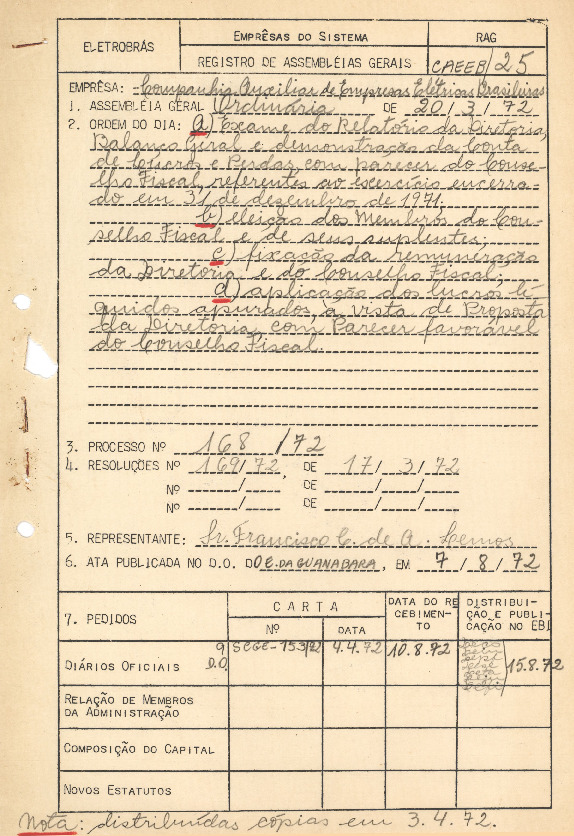 ELETROBRÁS
EMPRÊSAS DO SISTEMA
REGISTRO DE ASSEMBLÉIAS GERAIS
RAG
CAEEB/25
EMPRÊSA: -Companhia Auxiliar de Emprêsas Elétricas Brasileiras
1. ASSEMBLÉIA GERAL Ordinária DE 20/3/72
2. ORDEM DO DIA: a) Exame do Relatório da Diretoria,
Balanço Geral e demonstração da Conta
de Lucros e Perdas, com parecer do Conse-
lho Fiscal, referentes ao exercício encerra-
do em 31 de dezembro de 1971;
b) eleição dos Membros do Con-
selho Fiscal e de seus suplentes;
c) fixação da remuneração
da Diretoria e do Conselho Fiscal;
d) aplicação dos lucros lí-
quidos apurados, a vista de Proposta
da Diretoria, com Parecer favorável
do Conselho Fiscal.
3. PROCESSO Nº 168/72
4. RESOLUÇÕES Nº 169/72, DE 17/3/72
Nº / DE / /
Nº / DE / /
5. REPRESENTANTE: Sr. Francisco C. de A. Lemos
6. ATA PUBLICADA NO D.O. DO E. DA GUANABARA, EM 7/8/72
7. PEDIDOS
CARTA
Nº
DATA
DATA DO RE
CEBIMEN-
TO
DISTRIBUI-
ÇÃO E PUBLI-
CAÇÃO NO EBI
DIÁRIOS OFICIAIS
9
D.O.
SCGE-153/72
4.4.72
10.8.72
15.8.72
RELAÇÃO DE MEMBROS
DA ADMINISTRAÇÃO
COMPOSIÇÃO DO CAPITAL
NOVOS ESTATUTOS
Nota: distribuídas cópias em 3.4.72.